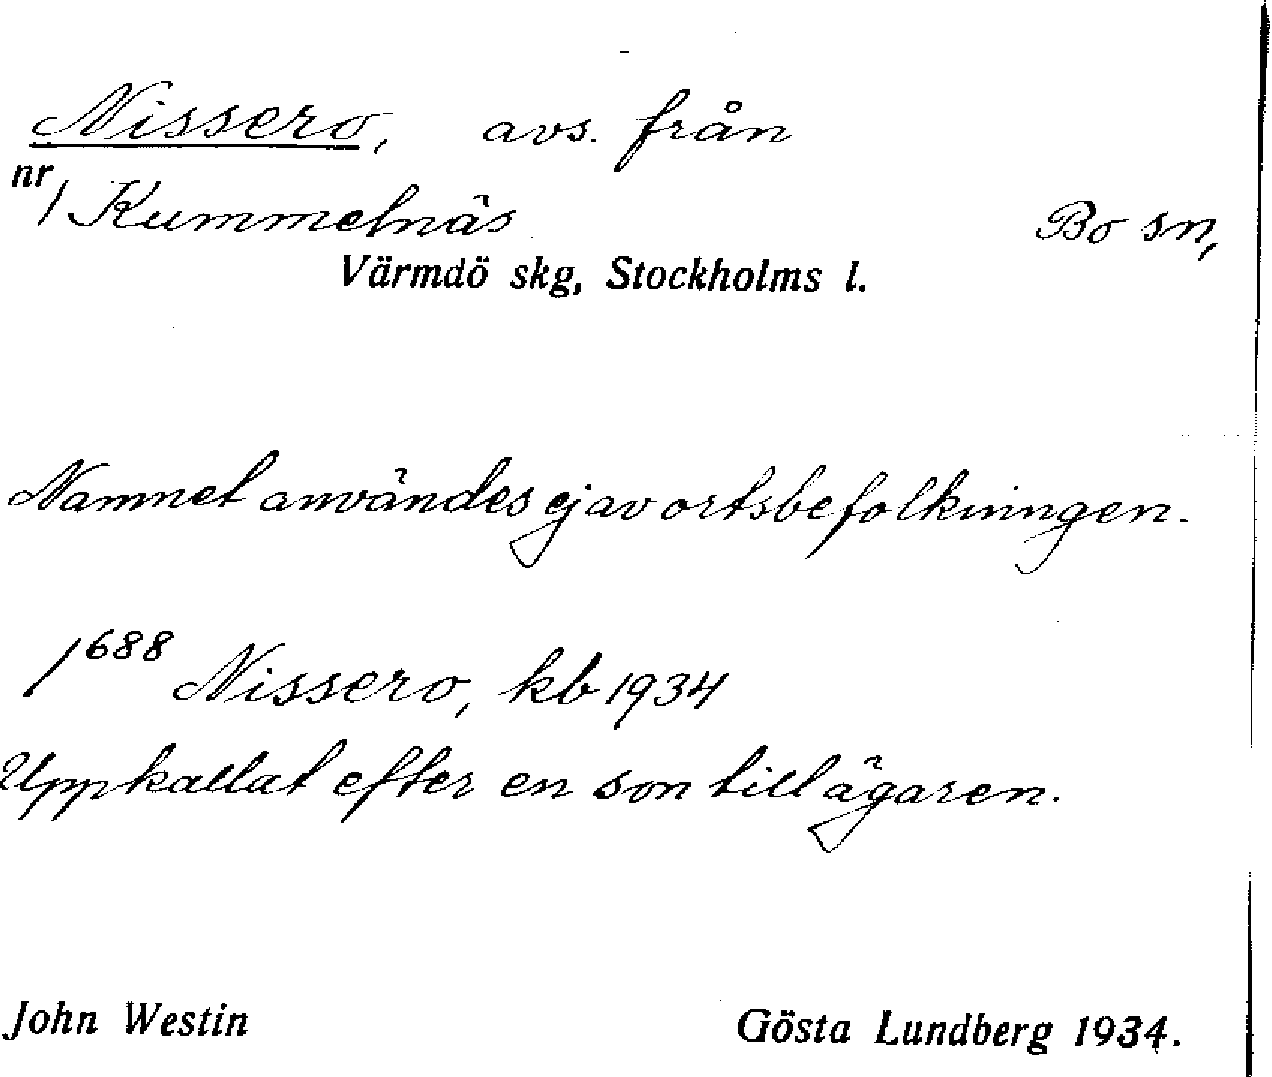 Nissero, avs. från
nr 1 Kummelnäs Bo sn,
Värmdö skg, Stockholms l.
Namnet användes ej av ortsbefolkningen.
1688 Nissero, kb 1934
Uppkallat efter en son till ägaren.
John Westin Gösta Lundberg 1934.